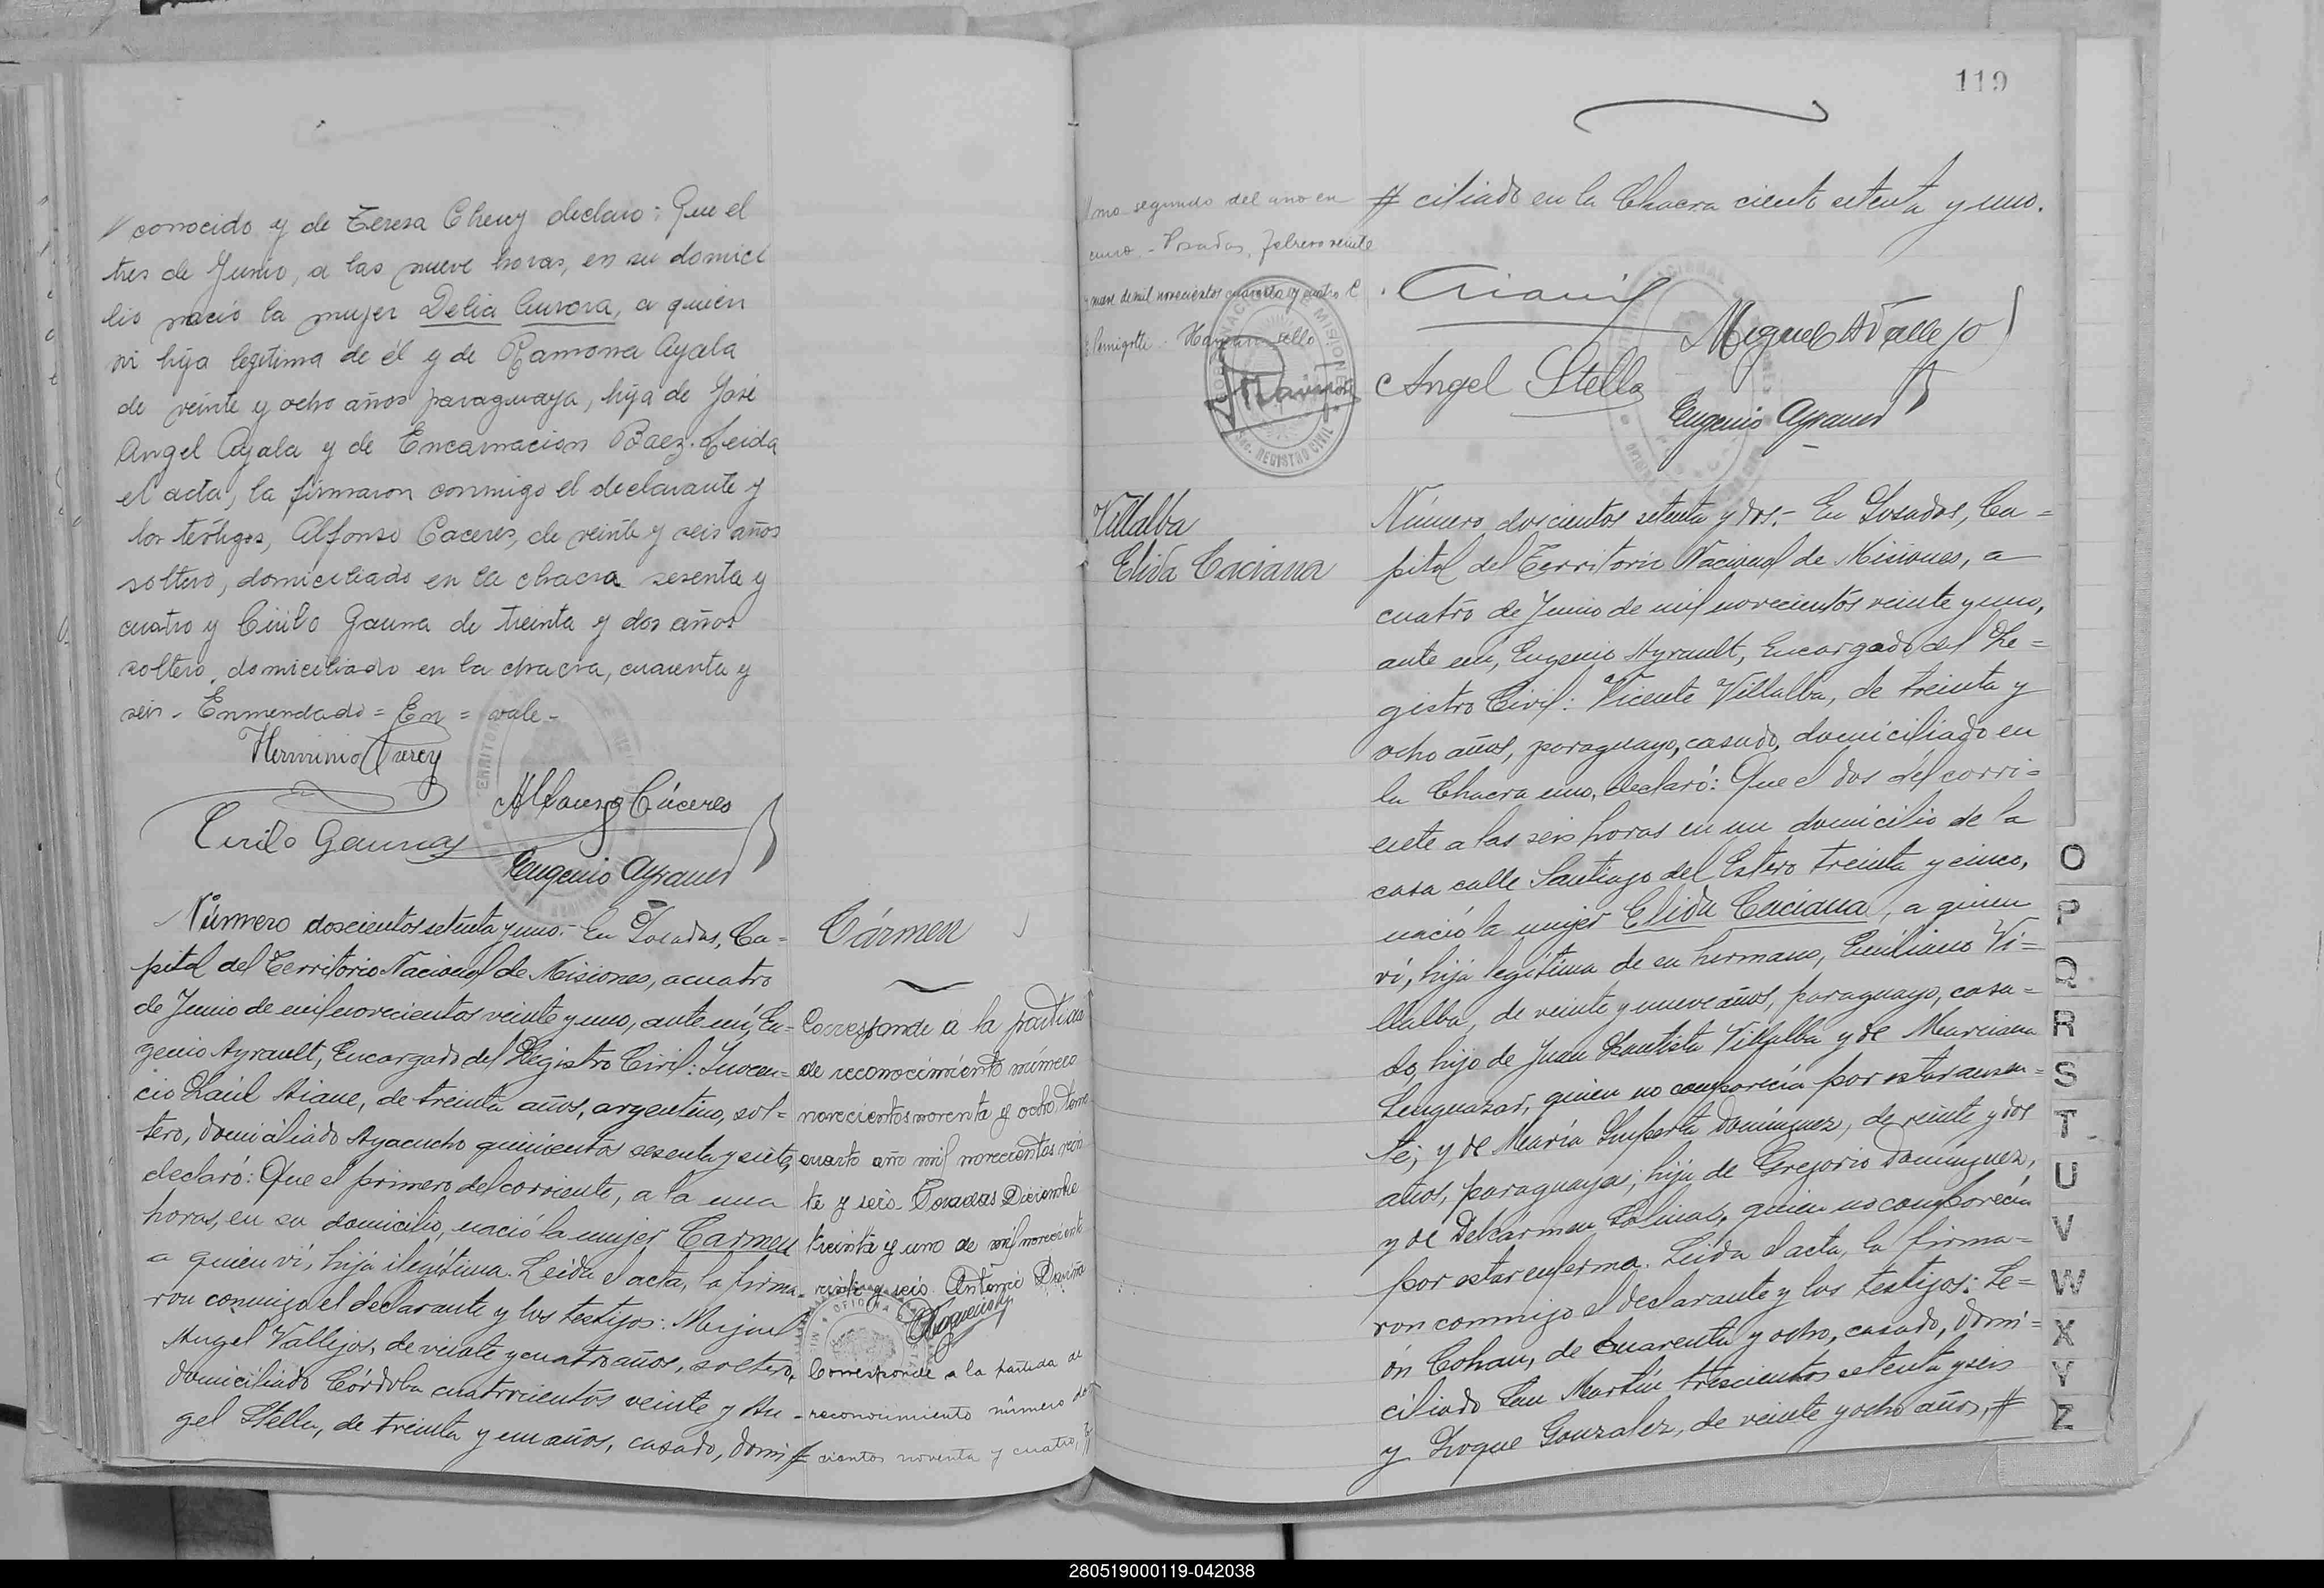 // conocido y de Teresa Cherey declaro: Que el
tres de Junio, a las nueve horas, en su domici
lio nació la mujer Delia Aurora, a quien
vi hija legitima de él y de Ramona Ayala
de veinte y ocho años paraguaya, hija de José
Angel Ayala y de Encarnacion Baez. Leida
el acta, la firmaron conmigo el declarante y
los testigos, Alfonso Caceres, de veinte y seis años
soltero, domiciliado en la chacra sesenta y
cuatro y Cirilo Gauna de treinta y dos años
soltero, domiciliado en la chacra, cuarenta y
seis - Enmendado = En = vale -
Herminio
Alfonso Cáceres
Cirilo Gauna
Eugenio Ayrault
Número doscientos setenta y uno.- En Posadas, Ca=
pital del Territorio Nacional de Misiones, a cuatro
de Junio de mil novecientos veinte y uno, ante mí, Eu=
genio Ayrault, Encargado del Registro Civil: Inocen=
cio Raúl, de treinta años, argentino, sol=
tero, domiciliado Ayacucho quinientos sesenta y siete,
declaró: Que el primero del corriente, a la una
horas, en su domicilio, nació la mujer Carmen
a quien vi, hija ilegítima. Leida el acta, la firma-
ron conmigo el declarante y los testigos: Miguel
Angel Vallejos, de veinte y cuatro años, soltero,
domiciliado Córdoba cuatrocientos veinte y An-
gel Stella, de treinta y un años, casado, domi #
Cármen
Corresponde a la partida
de reconocimiento número
novecientos noventa y ocho tomo
cuarto año mil novecientos vein
te y seis. Posadas Diciembre
treinta y uno de mil novecientos
veinte y seis Antonio
OFICINA
Corresponde a la partida de
reconocimiento número dos
cientos noventa y cuatro,
119
tomo segundo del año en
curso. - Posadas, Febrero veinte
y nueve de mil novecientos cuarenta y cuatro
Hay un sello
MISIONES
REGISTRO CIVIL
# ciliado en la Chacra ciento setenta y uno.
Miguel A Vallejo
Angel Stella
Eugenio Ayrault
Villalba
Elida Caciana
Número doscientos setenta y dos.- En Posadas, Ca=
pital del Territorio Nacional de Misiones, a
cuatro de Junio de mil novecientos veinte y uno,
ante mí, Eugenio Ayrault, Encargado del Re=
gistro Civil: Vicente Villalba, de treinta y
ocho años, paraguayo, casado, domiciliado en
la Chacra uno, declaró: Que el dos del corri=
ente a las seis horas en un domicilio de la
casa calle Santiago del Estero treinta y cinco,
nació la mujer Elida Caciana, a quien
vi, hija legítima de su hermano, Emiliano Vi=
llalba, de veinte y nueve años, paraguayo, casa=
do, hijo de Juan Bautista Villalba y de Marciana
quien no comparecía por estar ausen=
te; y de María Domínguez, de veinte y dos
años, paraguaya, hija de Gregorio Domínguez,
y de Delcarmen Salinas, quien no comparecía
por estar enferma. Leida el acta, la firma=
ron conmigo el declarante y los testigos: Le=
ón Cohan, de cuarenta y ocho, casado, domi=
ciliado San Martín trescientos setenta y seis
y Roque Gonzalez, de veinte y ocho años, #
O
P
Q
R
S
T
U
V
W
X
Y
Z
280519000119-042038